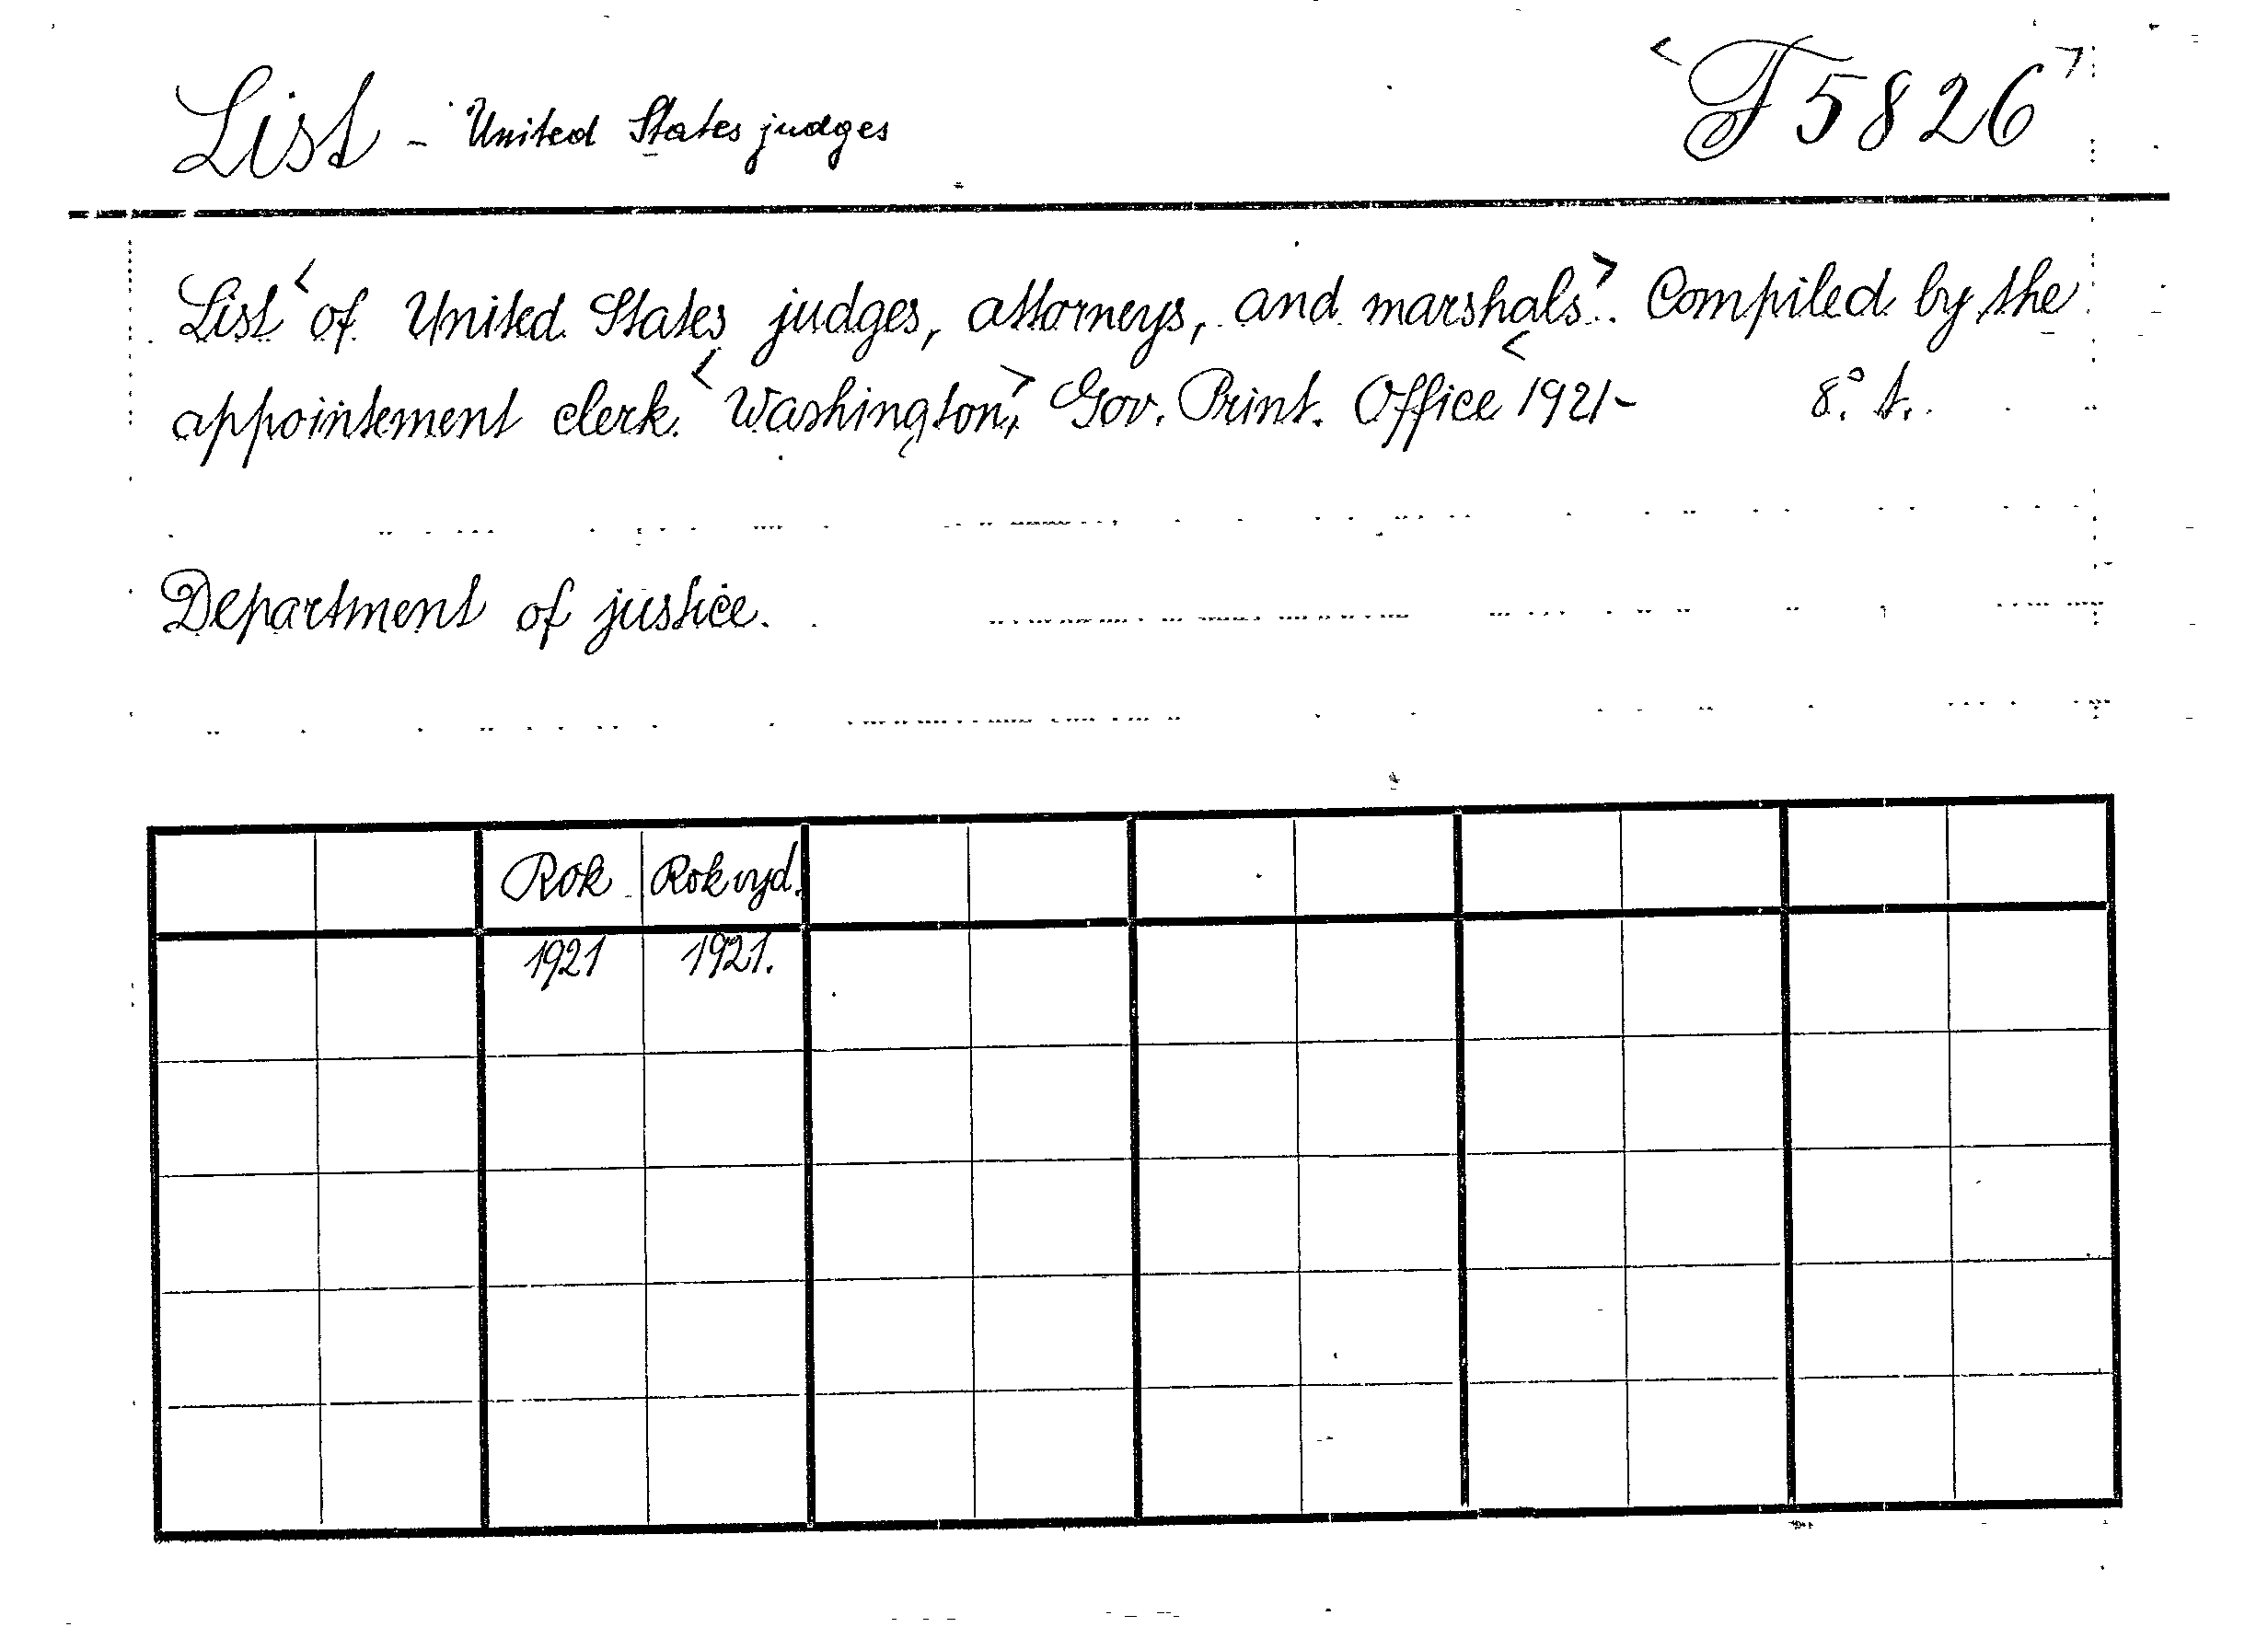 List - United States judges <F 5826>
List <of United States judges, attorneys, and marshals>. Compiled by the
appointement clerk. <Washington>, Gov. Print. Office <1921- 8° t.
Department of justice.
Rok Rok vyd.
1921 1921.